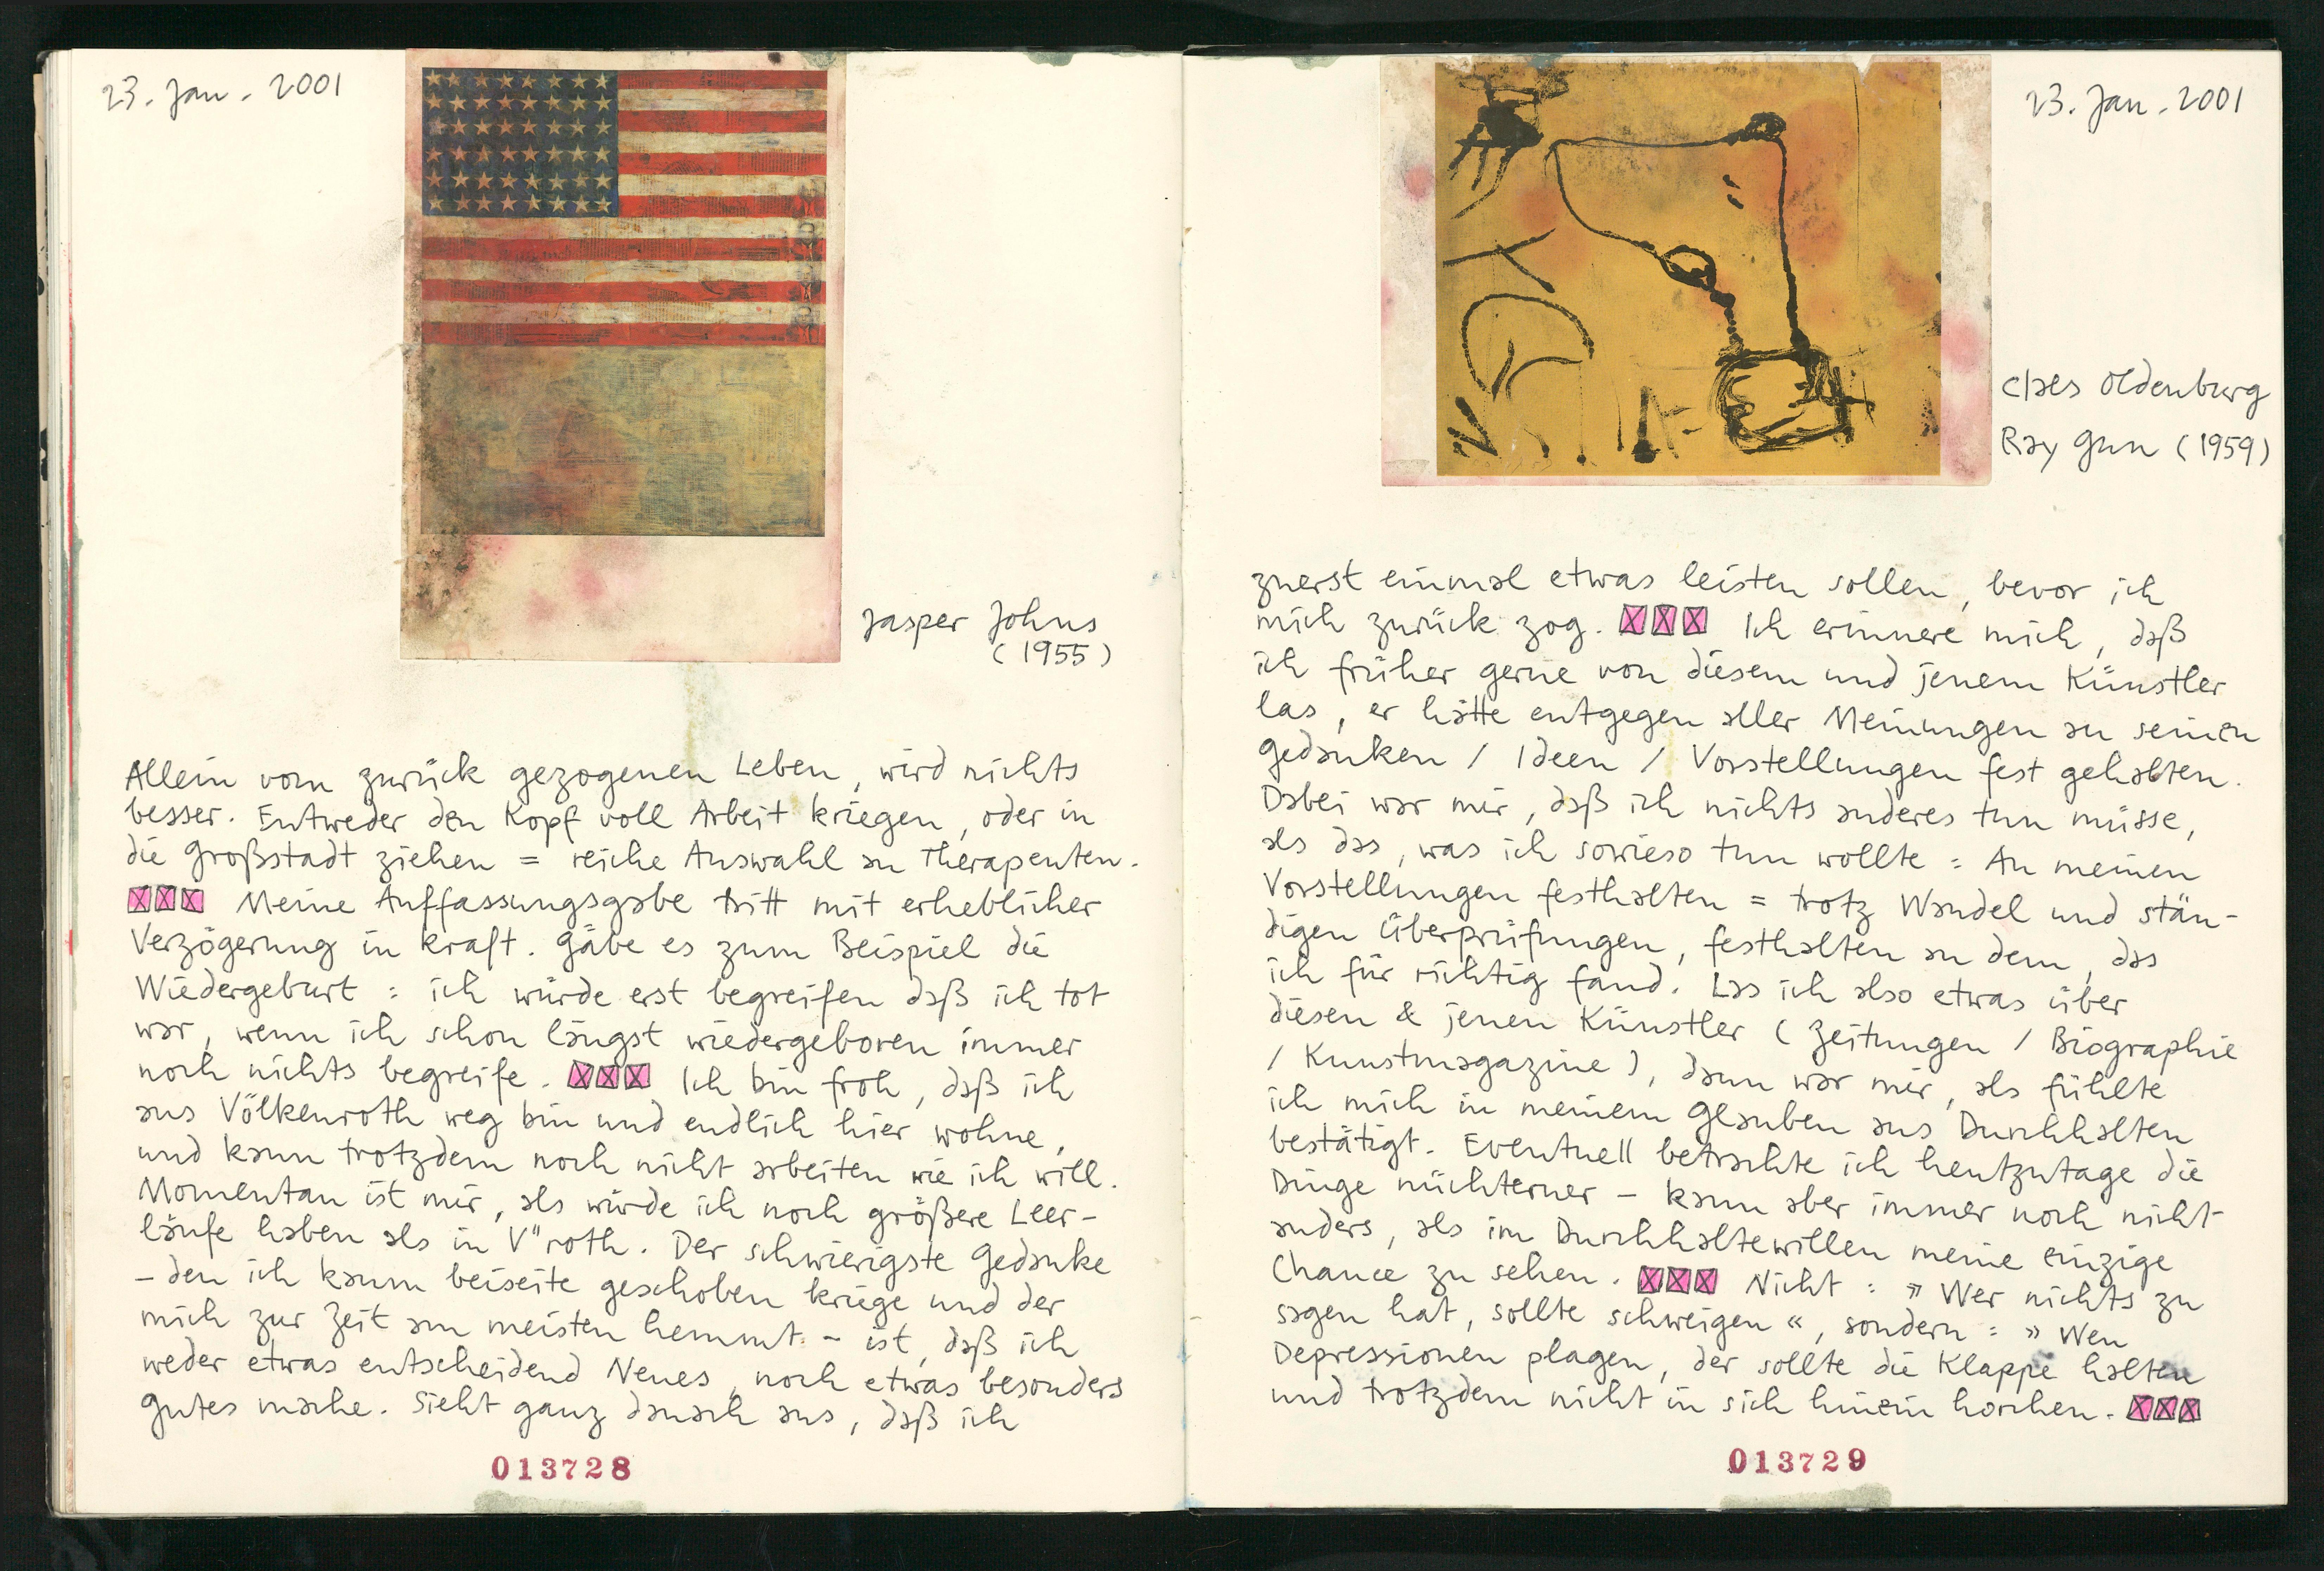 23. Jan. 2001
Jasper Johns
(1955)
Allein vom zurück gezogenen Leben, wird nichts
besser. Entweder den Kopf voll Arbeit kriegen, oder in
die Großstadt ziehen = reiche Auswahl an Therapeuten.
XXX Meine Auffassungsgabe tritt mit erheblicher
Verzögerung in kraft. Gäbe es zum Beispiel die
Wiedergeburt : ich würde erst begreifen daß ich tot
war, wenn ich schon längst wiedergeboren immer
noch nichts begreife. XXX Ich bin froh, daß ich
aus Völkenroth weg bin und endlich hier wohne,
und kann trotzdem noch nicht arbeiten wie ich will.
Momentan ist mir, als würde ich noch größere Leer-
läufe haben als in V"roth. Der schwierigste Gedanke
– den ich kaum beiseite geschoben kriege und der
mich zur Zeit am meisten hemmt – ist, daß ich
weder etwas entscheidend Neues, noch etwas besonders
gutes mache. Sieht ganz danach aus, daß ich
013728
23. Jan. 2001
Claes Oldenburg
Ray Gun (1959)
zuerst einmal etwas leisten sollen, bevor ich
mich zurück zog. XXX Ich erinnere mich, daß
ich früher gerne von diesem und jenem Künstler
las, er hätte entgegen aller Meinungen an seinen
Gedanken / Ideen / Vorstellungen fest gehalten.
Dabei war mir, daß ich nichts anderes tun müsse,
als das, was ich sowieso tun wollte : An meinen
Vorstellungen festhalten = trotz Wandel und stän-
digen Überprüfungen, festhalten an dem, das
ich für richtig fand. Las ich also etwas über
diesen & jenen Künstler (Zeitungen / Biographie
/ Kunstmagazine), dann war mir, als fühlte
ich mich in meinem Glauben ans Durchhalten
bestätigt. Eventuell betrachte ich heutzutage die
Dinge nüchterner – kann aber immer noch nicht
anders, als im Durchhaltewillen meine einzige
Chance zu sehen. XXX Nicht : »Wer nichts zu
sagen hat, sollte schweigen«, sondern : »Wen
Depressionen plagen, der sollte die Klappe halten
und trotzdem nicht in sich hinein horchen. XXX
013729